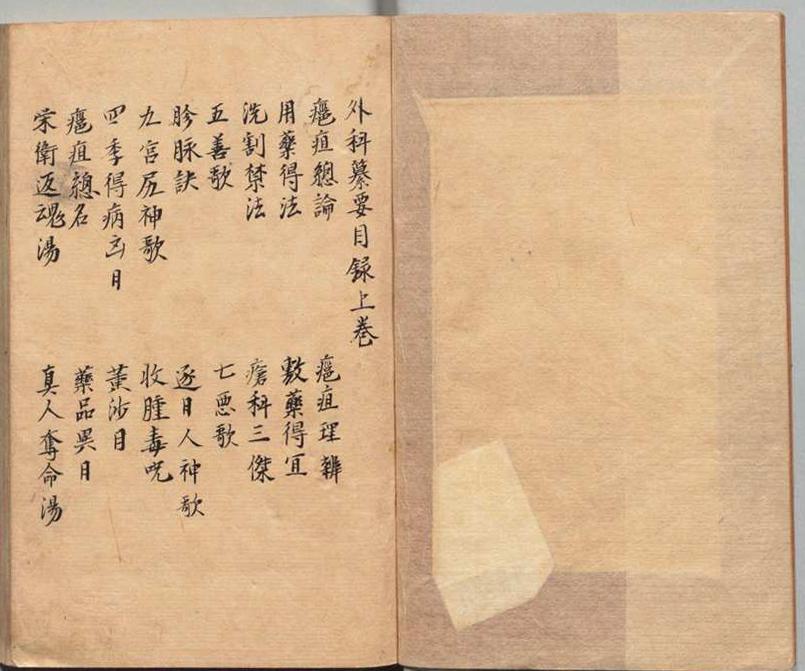 外科纂要目録上卷
癰疽總論 癰疽理辨
用藥得法 敷藥得宜
洗割禁法 瘡科三傑
五善歌 七惡歌
胗脉訣 逐日人神歌
九宮尻神歌 收腫毒呪
四季得病凶日 黃沙日
癰疽總名 藥品異目
荣衛返魂湯 真人奪命湯